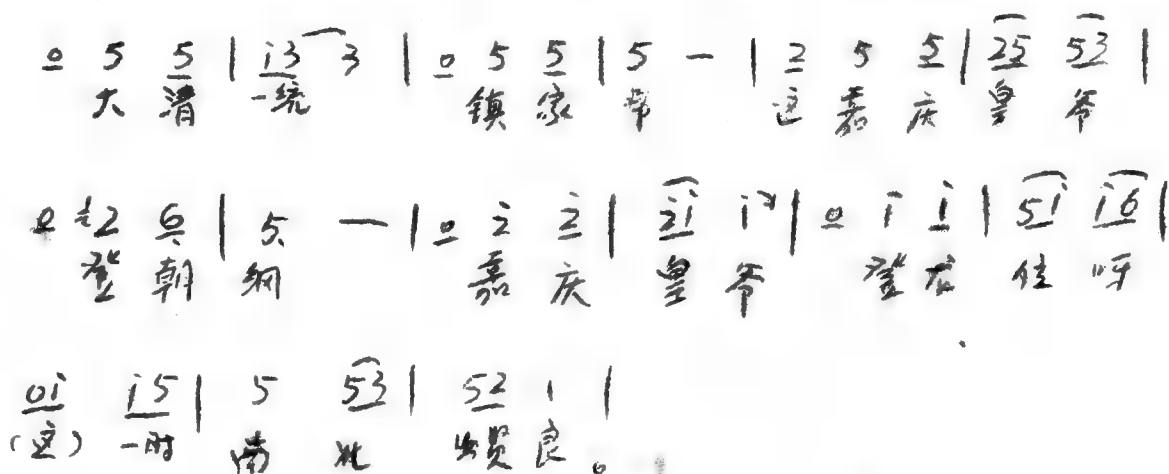 0 5 5 | i3 3 | 0 5 5 | 5 — | 2 5 5 | 25 53 |
大 清 一统 镇 家 邦 这 嘉 庆 皇 爷
0 2 6 | 5 — | 0 2 2 | 2i i | 0 i i | 5i i6 |
登 朝 纲 嘉 庆 皇 爷 登 龙 位 呀
0i i5 | 5 53 | 52 1 |
(这) 一时 南 北 出贤 良。